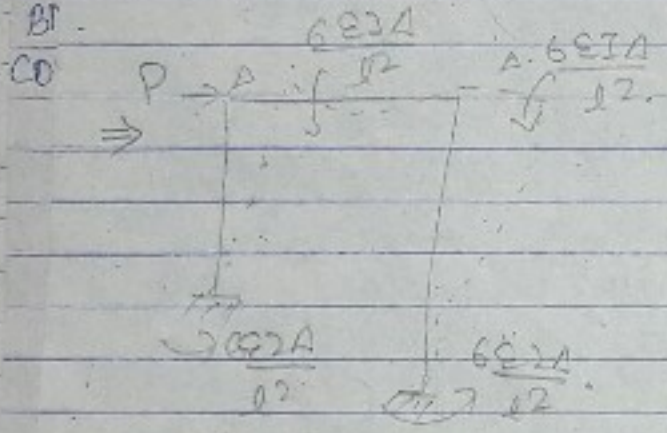 BI
CD
6EIΔ
l2
P → Δ
Δ. 6EIΔ
l2.
⇒
6EIΔ
l2
6EIΔ
l2